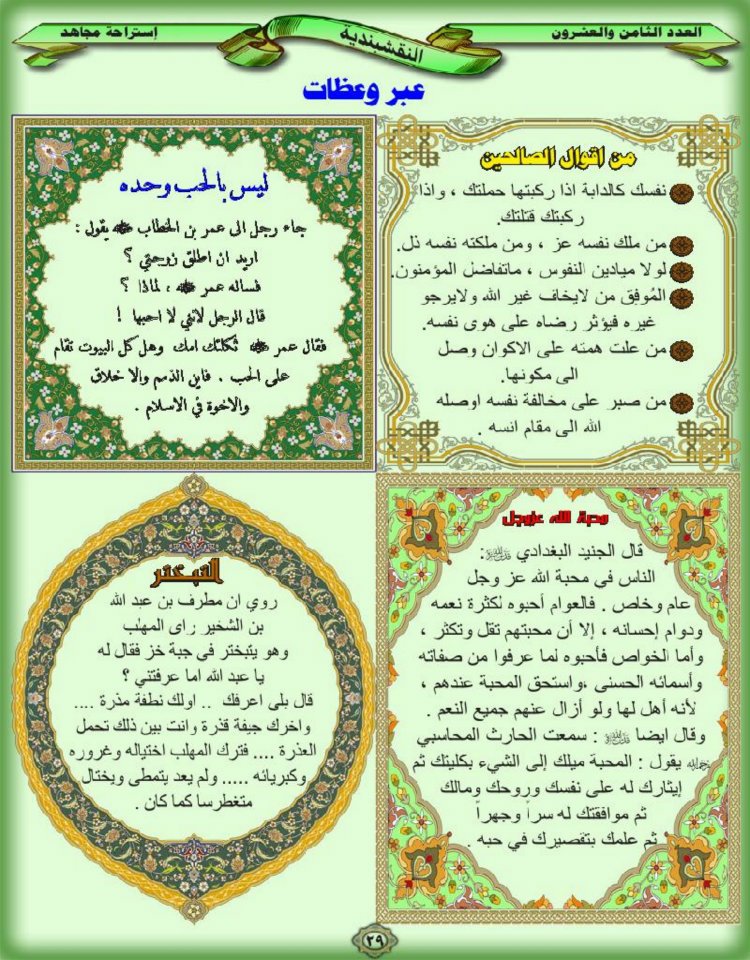 العدد الثامن والعشرون
النقشبندية
إستراحة مجاهد
عبر وعظات
من اقوال الصالحين
نفسك كالدابة اذا ركبتها حملتك ، واذا
ركبتك قتلتك.
من ملك نفسه عز ، ومن ملكته نفسه ذل.
لولا ميادين النفوس ، ماتفاضل المؤمنون.
المُوفِق من لايخاف غير الله ولايرجو
غيره فيؤثر رضاه على هوى نفسه.
من علت همته على الاكوان وصل
الى مكونها.
من صبر على مخالفة نفسه اوصله
الله الى مقام انسه .
ليس بالحب وحده
جاء رجل الى عمر بن الخطاب يقول :
اريد ان اطلق زوجتي ؟
فساله عمر ، لماذا ؟
قال الرجل لاني لا احبها !
فقال عمر ثكلتك امك وهل كل البيوت تقام
على الحب . فاين الذمم والاخلاق
والاخوة في الاسلام .
محبة الله عزوجل
قال الجنيد البغدادي :
الناس في محبة الله عز وجل
عام وخاص . فالعوام أحبوه لكثرة نعمه
ودوام إحسانه ، إلا أن محبتهم تقل وتكثر ،
وأما الخواص فأحبوه لما عرفوا من صفاته
وأسمائه الحسنى ،واستحق المحبة عندهم ،
لأنه أهل لها ولو أزال عنهم جميع النعم .
وقال ايضا : سمعت الحارث المحاسبي
يقول : المحبة ميلك إلى الشيء بكليتك ثم
إيثارك له على نفسك وروحك ومالك
ثم موافقتك له سراً وجهراً
ثم علمك بتقصيرك في حبه .
التبختر
روي ان مطرف بن عبد الله
بن الشخير راى المهلب
وهو يتبختر في جبة خز فقال له
يا عبد الله اما عرفتني ؟
قال بلى اعرفك .. اولك نطفة مذرة ....
واخرك جيفة قذرة وانت بين ذلك تحمل
العذرة .... فترك المهلب اختياله وغروره
وكبريائه ..... ولم يعد يتمطى ويختال
متغطرسا كما كان .
٢٩